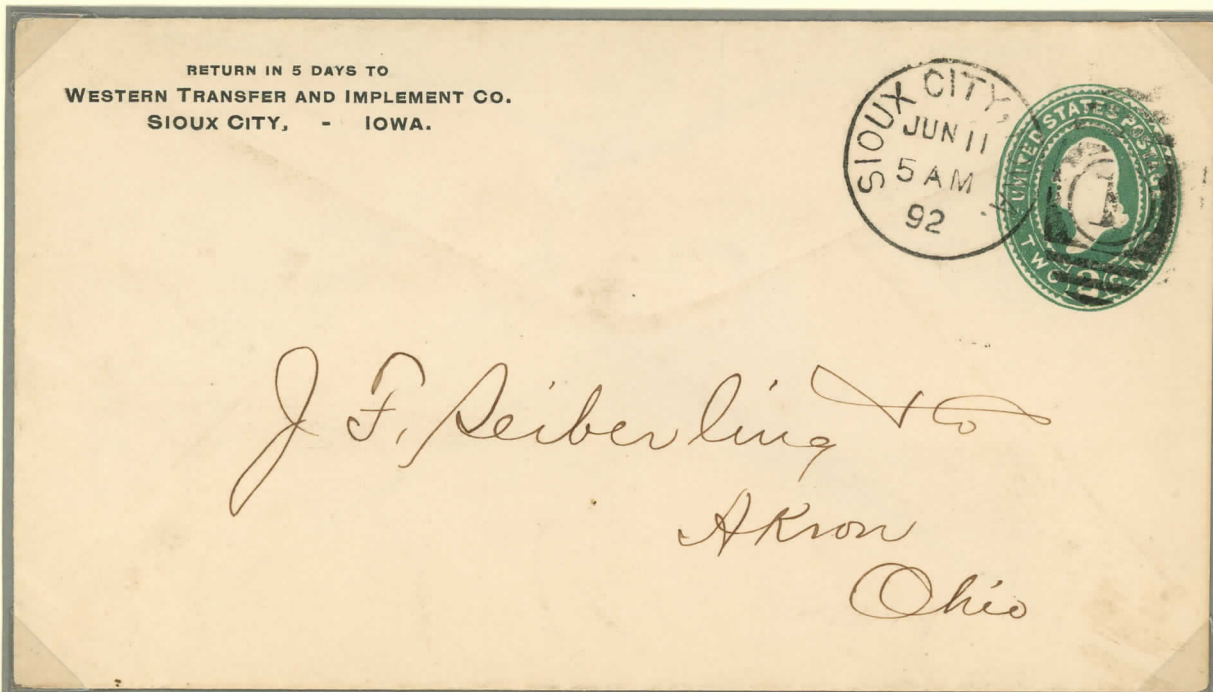 RETURN IN 5 DAYS TO
WESTERN TRANSFER AND IMPLEMENT CO.
SIOUX CITY, - IOWA.
SIOUX CITY, IA.
JUN 11
5 AM
92
UNITED STATES POSTAGE
TWO 2
1
J. F. Seiberling & Co
Akron
Ohio